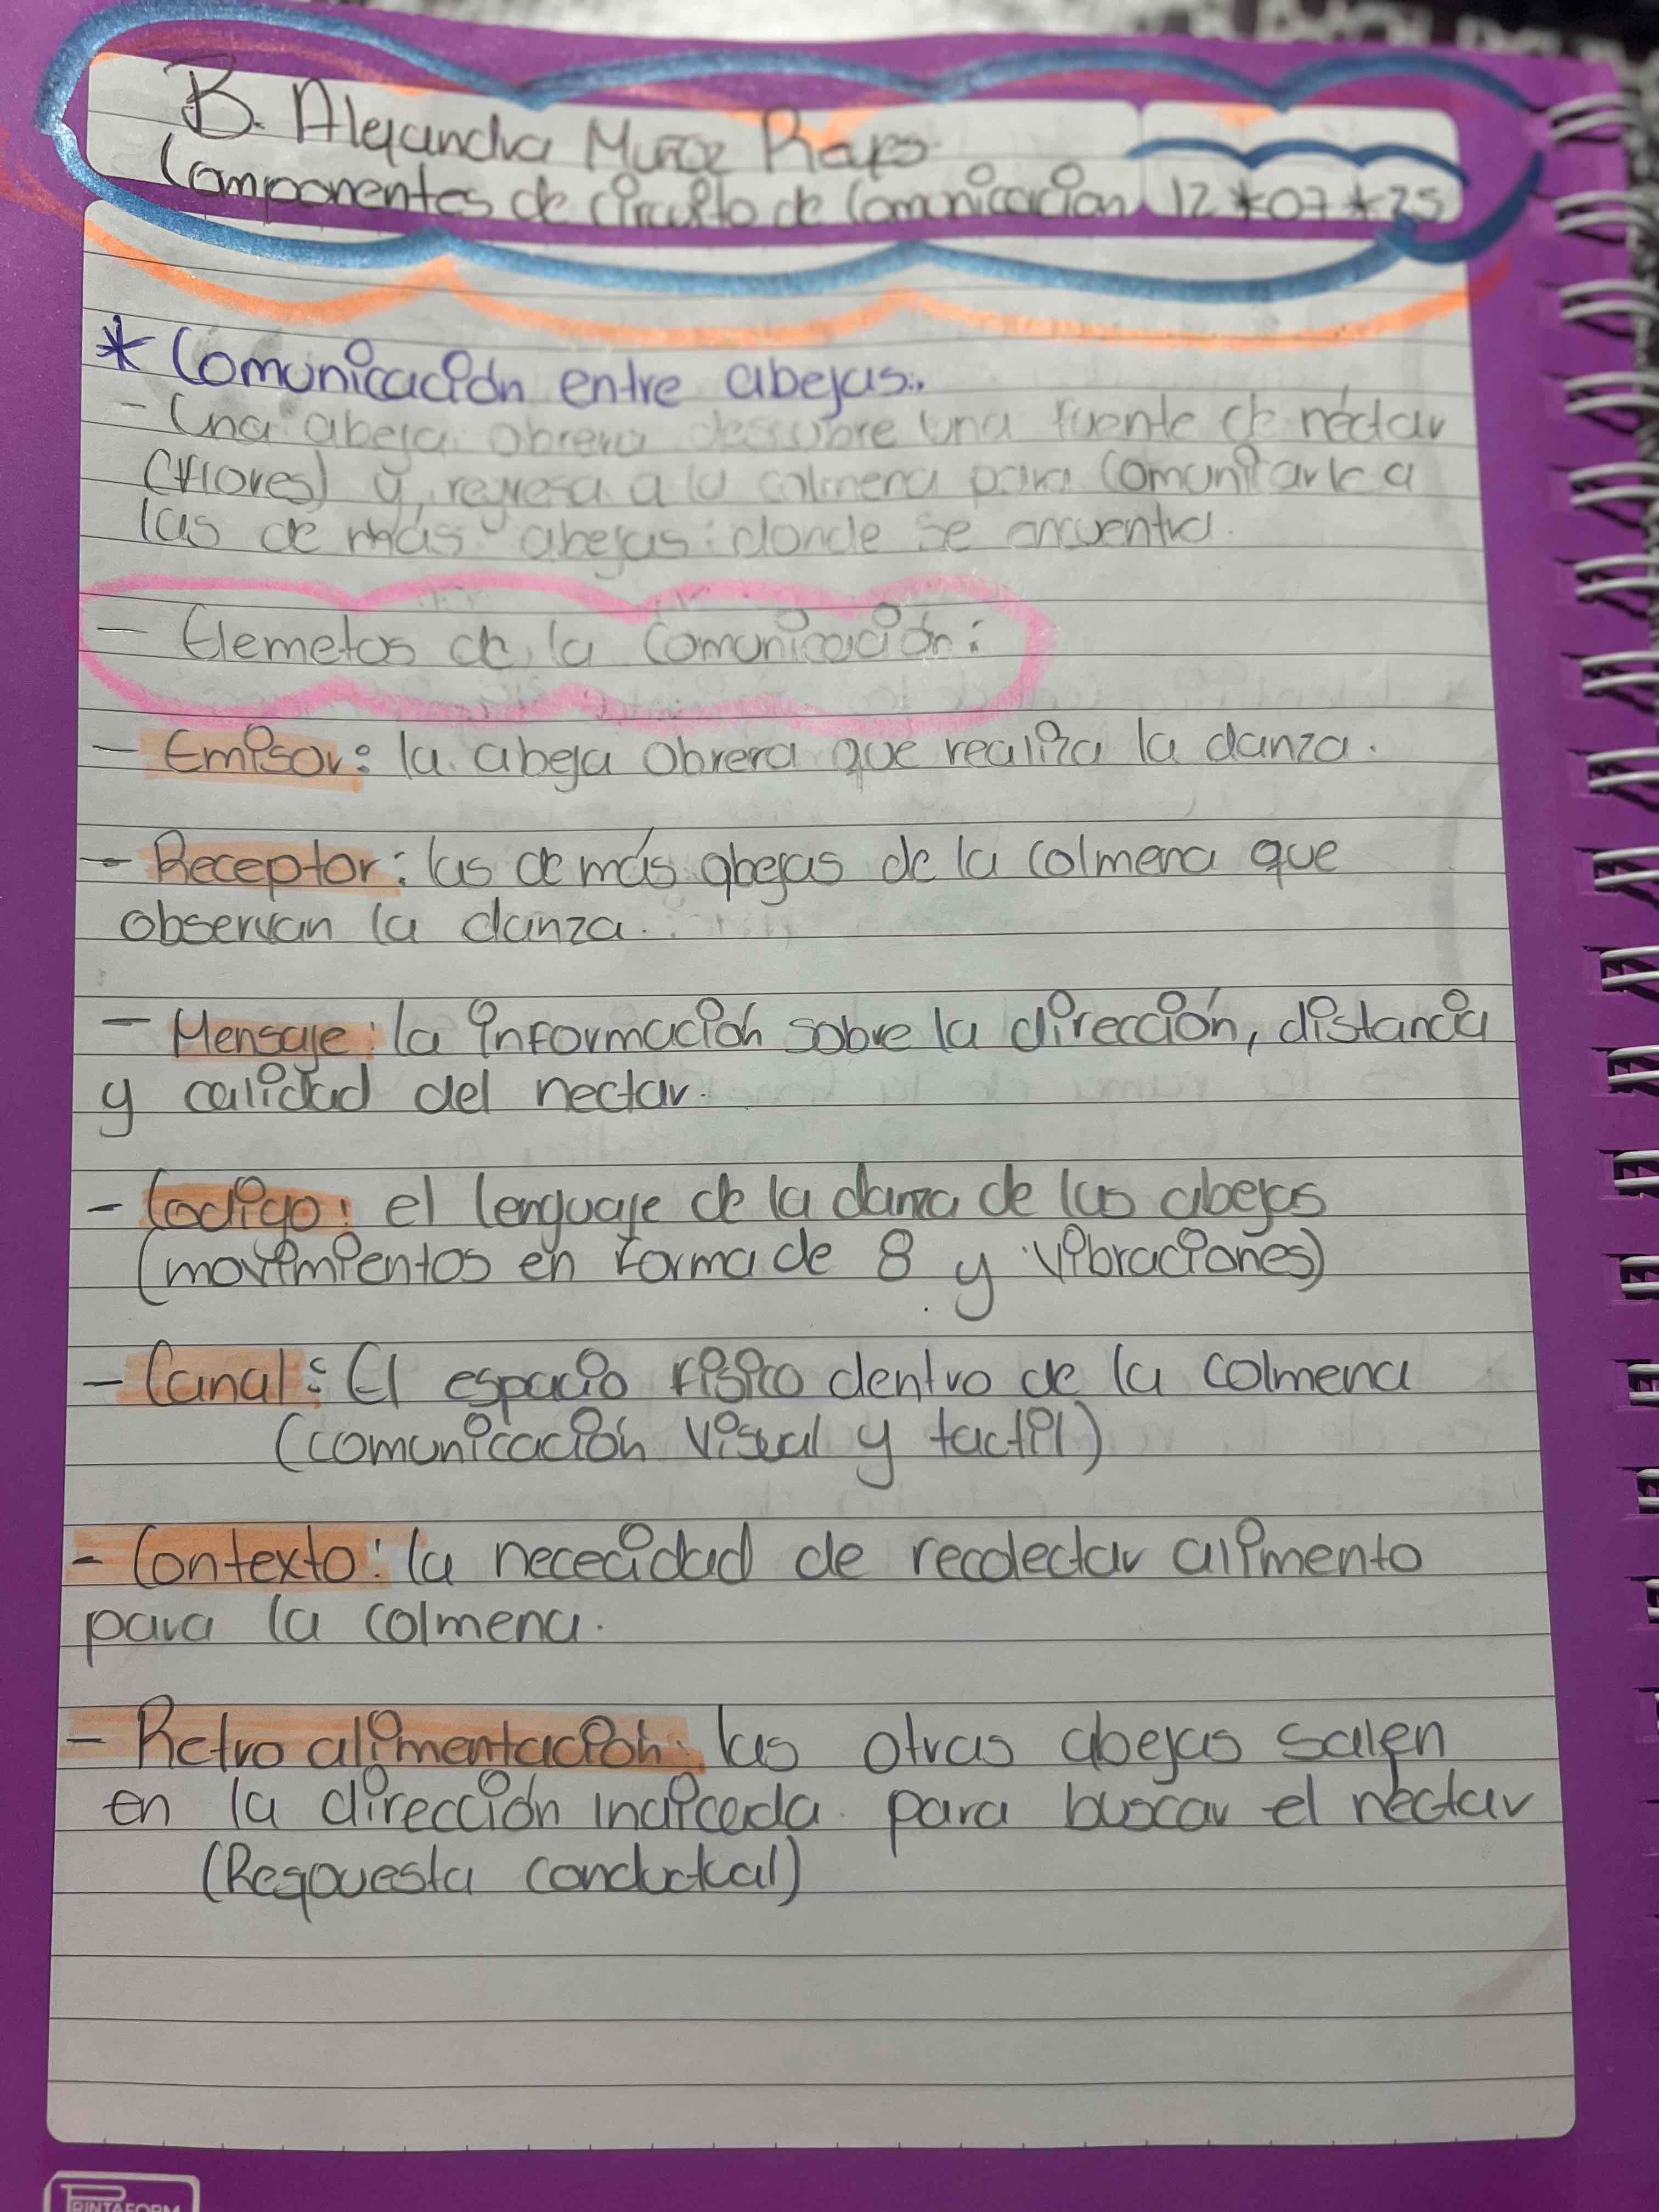 B. Alejandra Muñoz Rays
Componentes de circuito de Comunicacion 12*07*25
* Comunicación entre abejas..
- Una abeja obrera descubre una fuente de néctar
(flores) y, regresa a la colmena para comunicarle a
las de más abejas donde se encuentra.
- Elemetos de la Comunicación:
- Emisor: la abeja obrera que realiza la danza.
- Receptor: las de más abejas de la colmena que
observan la danza.
- Mensaje: la información sobre la dirección, distancia
y calidad del nectar.
- Codigo: el lenguaje de la danza de las abejas
(movimientos en forma de 8 y vibraciones)
- Canal: El espacio fisico dentro de la colmena
(comunicación visual y tactil)
- Contexto: la nececidad de recolectar alimento
para la colmena.
- Retro alimentación: las otras abejas salen
en la dirección indicada para buscar el néctar
(Respuesta conductual)
PRINTAFORM